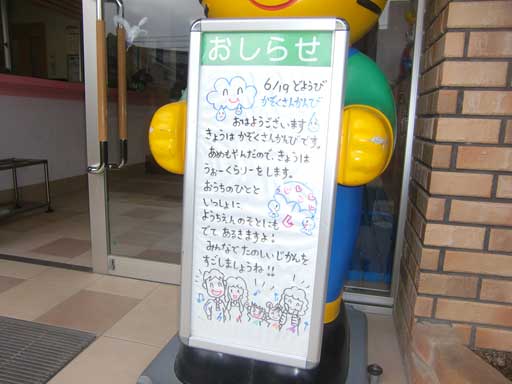 おしらせ
6/19 どようび
かぞくさんかんび
おはようございます
きょうは かぞくさんかんび です。
あめもやんだので、きょうは
うぉーくらりーをします。
おうちのひとと
いっしょに
ようちえんのそとにも
でて あるきますよ!
みんなで たのしい じかんを
すごしましょうね!!